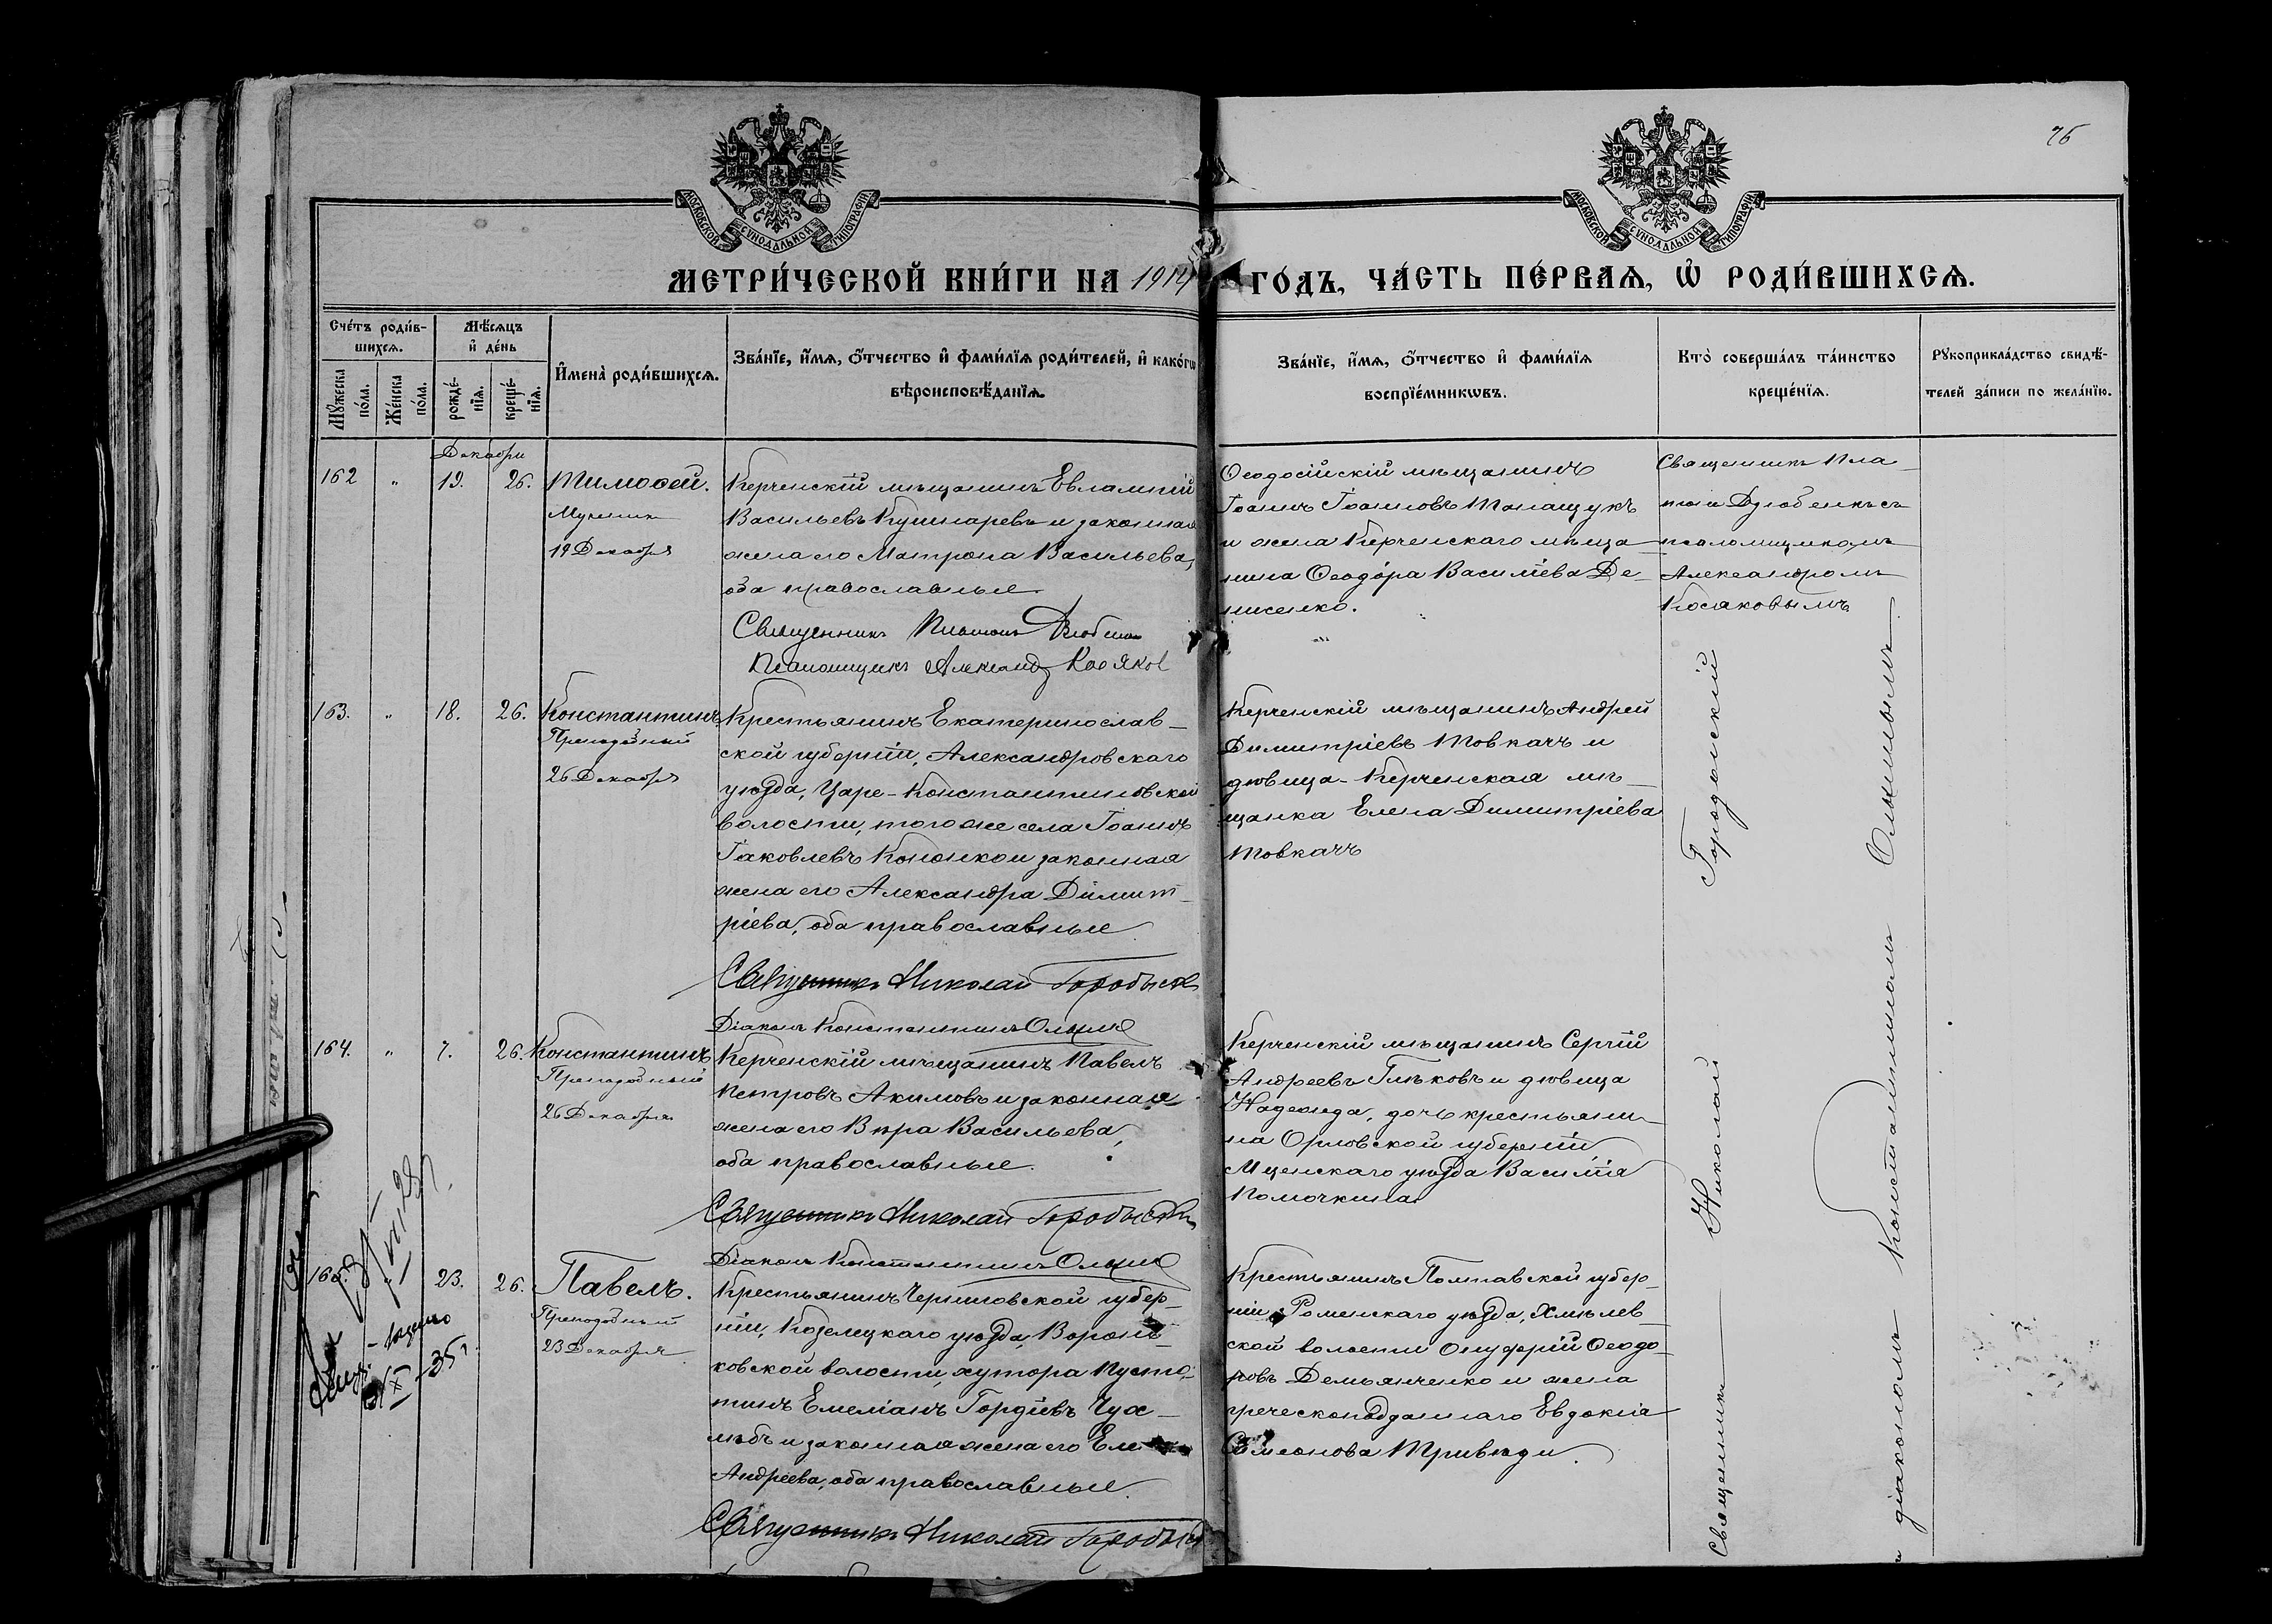 76
МОСКОВСКОЙ СѴНОДАЛЬНОЙ ТИПОГРАФІИ
МОСКОВСКОЙ СѴНОДАЛЬНОЙ ТИПОГРАФІИ
МЕТРИ́ЧЕСКОЙ КНИ́ГИ НА 1914 ГО́ДЪ, ЧА́СТЬ ПЕ́РВАѦ, Ѽ РОДИ́ВШИХСѦ.
Сче́тъ роди́в-
шихсѧ.
Мѣ́сѧцъ
и҆ де́нь
Мꙋ́жеска
по́ла.
Же́нска
по́ла.
рожде́-
нїѧ.
креще́-
нїѧ.
И҆мена̀ роди́вшихсѧ.
Зва́нїе, и҆́мѧ, ѻ҆́тчество и҆ фами́лїѧ роди́телей, и҆ како́гѡ
вѣроисповѣ́данїѧ.
Зва́нїе, и҆́мѧ, ѻ҆́тчество и҆ фами́лїѧ
воспрїе́мникѡвъ.
Кто̀ соверша́лъ та́инство
креще́нїѧ.
Рꙋкоприкла́дство свидѣ́-
телей за́писи по жела́нїю.
Декабря
162 " 19. 26. Тимоѳей.
Мученик
19 Декабря
Керченскій мѣщанинъ Евлампій
Васильевъ Кушнаревъ и законная
жена его Матрона Васильева,
оба православные.
Священникъ Платонъ
Псаломщикъ Александр Косяков
Ѳеодосійскій мѣщанинъ
Іоаннъ Іоанновъ Танащукъ
и жена Керченскаго мѣща-
нина Ѳеодора Василіева Де-
нисенко.
Священникъ Пла-
тонъ Дзюбенкъ съ
псаломщикомъ
Александромъ
Косяковымъ
163. " 18. 26. Константинъ
Преподобный
26 Декабря
Крестьянинъ Екатеринослав-
ской губерніи, Александровскаго
уѣзда, Царе-Константиновской
волости, того же села Іоаннъ
Іаковлевъ Кононко и законная
жена его Александра Димит-
ріева, оба православные.
Священникъ Николай Городыск
Діаконъ Константинъ
Керченскій мѣщанинъ Андрей
Димитріевъ Товкачъ и
дѣвица-Керченская мѣ-
щанка Елена Димитріева
Товкачъ
164. " 7. 26. Константинъ
Преподобный
26 Декабря
Керченскій мѣщанинъ Павелъ
Петровъ Акимовъ и законная
жена его Вѣра Васильева,
оба православные.
Священникъ Николай Городыск
Діаконъ Константинъ
Керченскій мѣщанинъ Сергій
Андреевъ Глѣковъ и дѣвица
Надежда, дочь крестьяни-
на Орловской губерніи
Мценскаго уѣзда Василія
Помочкина
165. " 23. 26. Павелъ.
Преподобный
23 Декабря
Крестьянинъ Черниговской губер-
ніи, Козелецкаго уѣзда, Воронь-
ковской волости, хутора Пусто-
тинъ Емеліанъ Гордіевъ Чух-
лѣбъ и законная жена его Еле
Андреева, оба православные.
Священникъ Николай Городыск
Крестьянинъ Полтавской губер-
ніи, Роменскаго уѣзда, Хмѣлев-
ской волости Онуфрій Ѳеодо-
ровъ Демьянченко и жена
греческоподданнаго Евдокія
Симеонова Тривѣди.
Священникъ Николай Городыскій
и діаконом Константиномъ